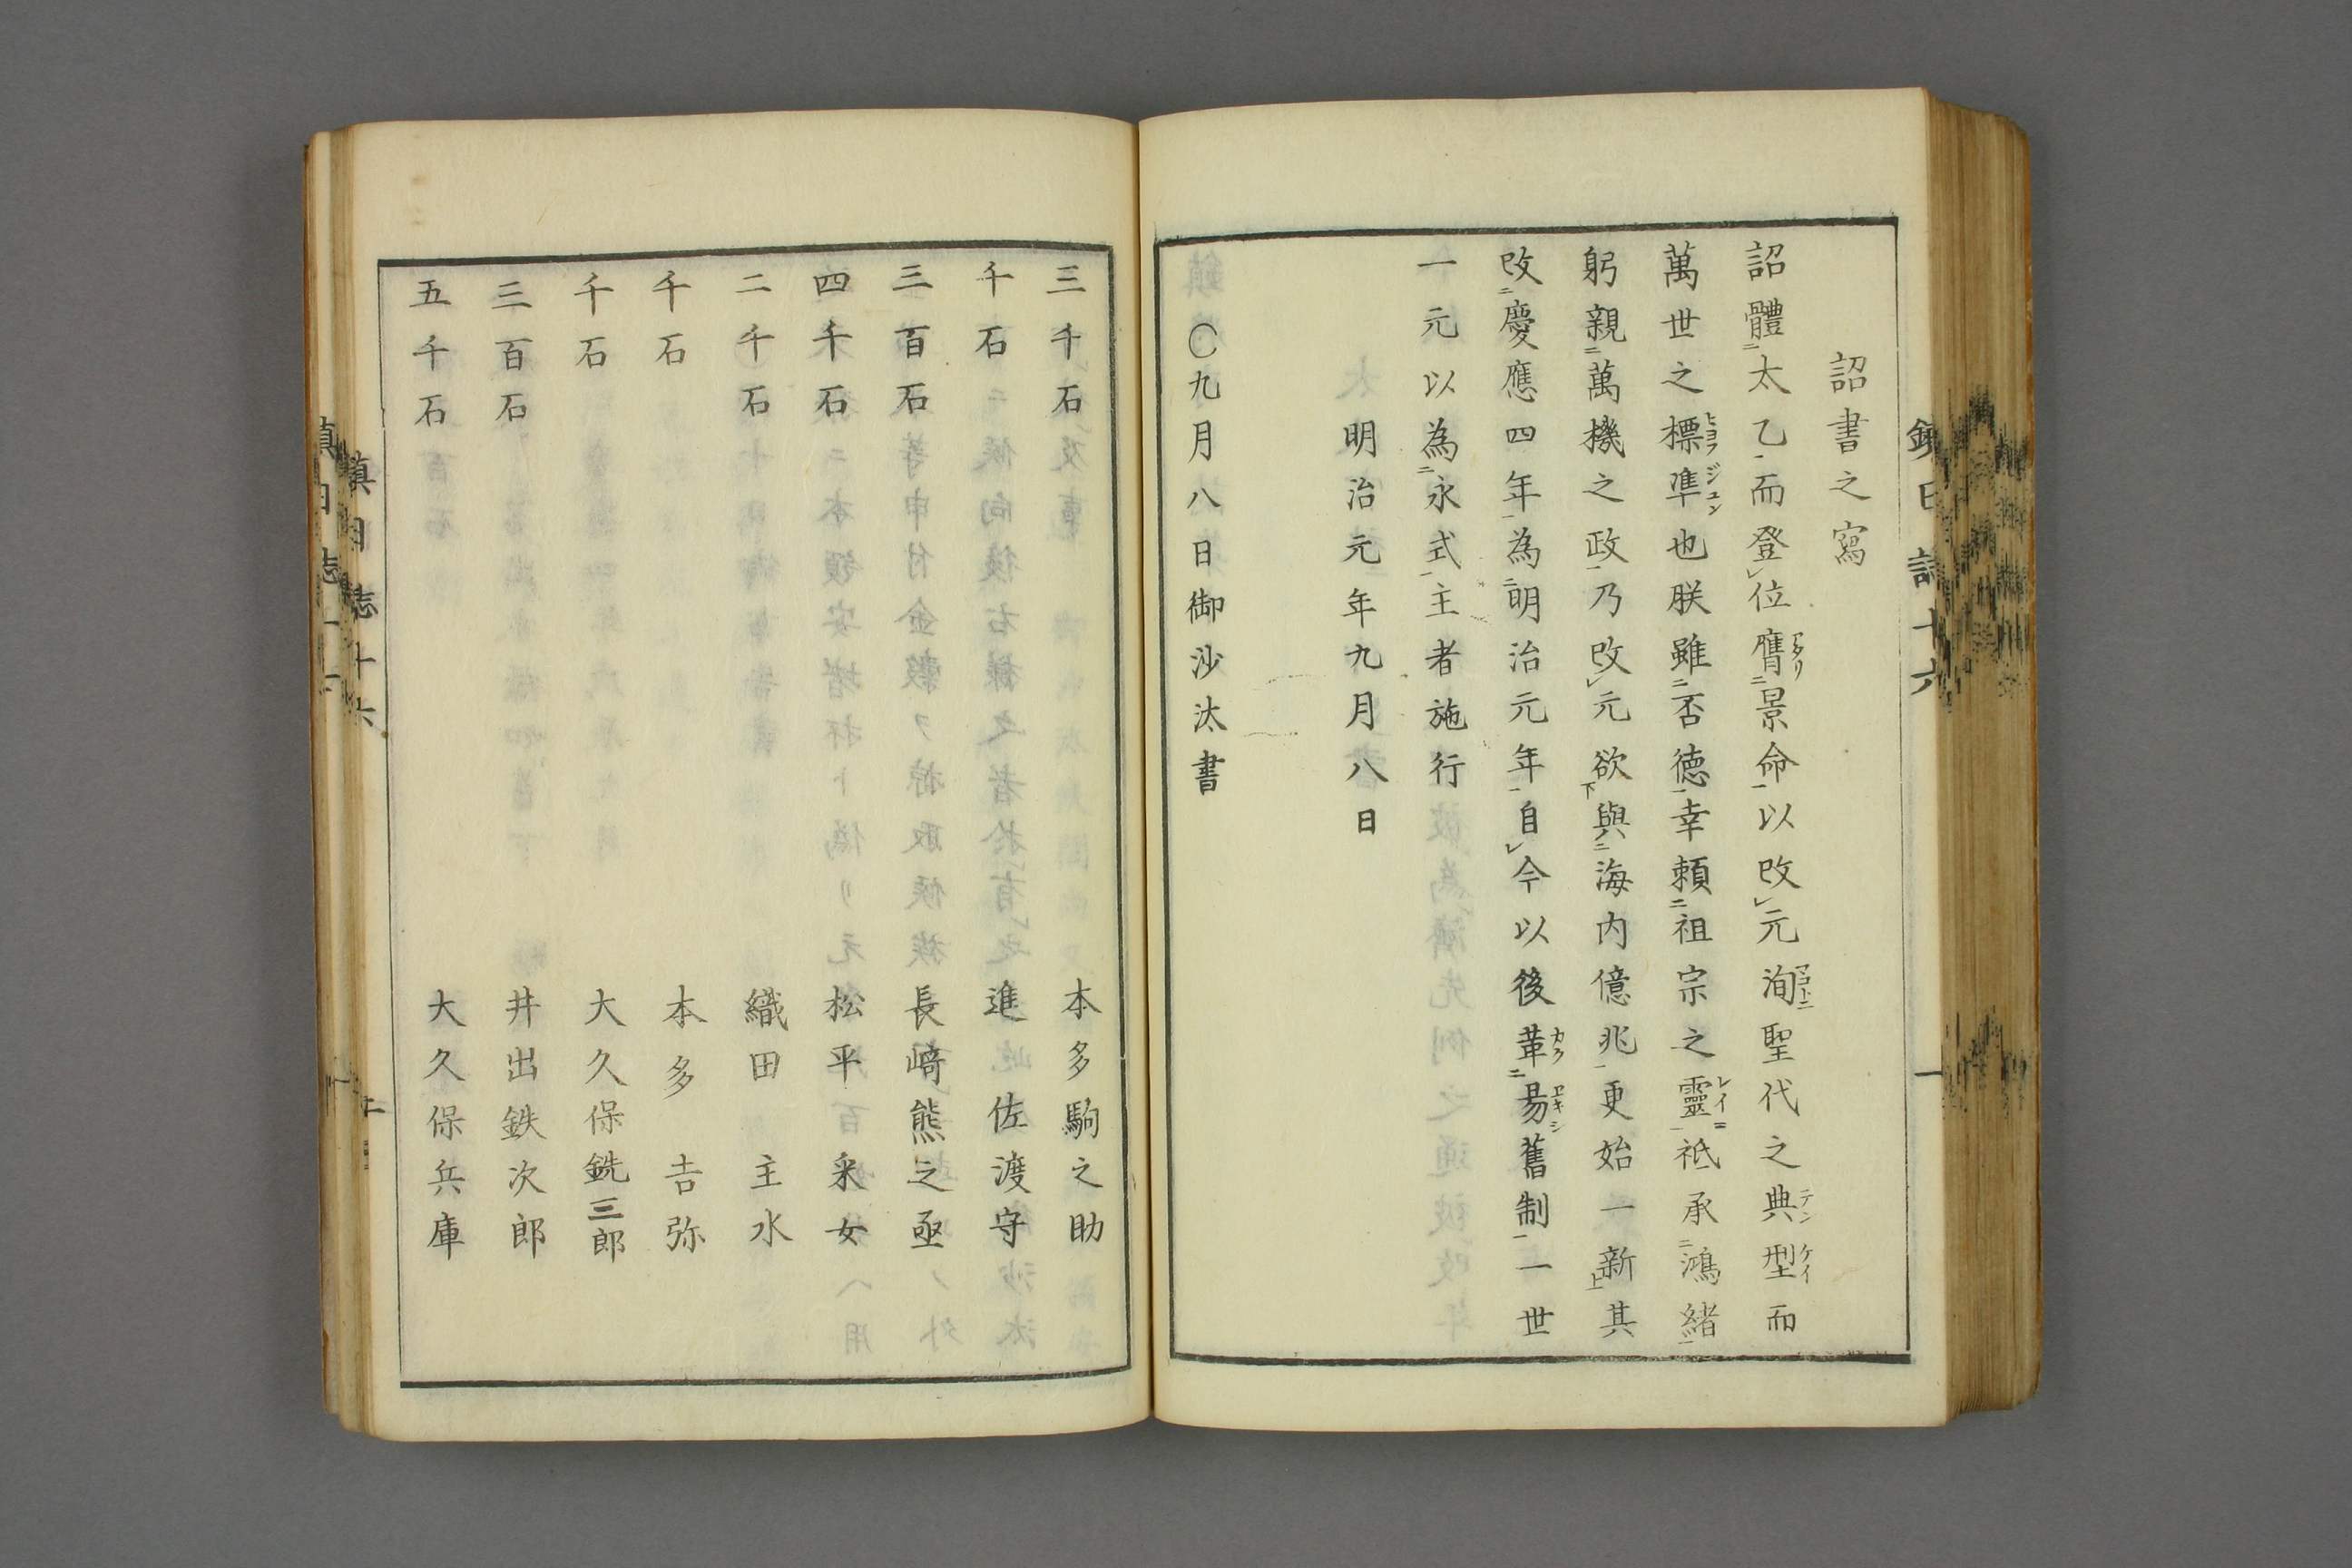 詔書之寫
詔體太乙而登位膺景命以改元洵聖代之典型而
萬世之標準也朕雖否徳幸頼祖宗之靈祗承鴻緒
躬親萬機之政乃改元欲與海内億兆更始一新其
改慶應四年為明治元年自今以後革易舊制一世
一元以為永式主者施行
明治元年九月八日
〇九月八日御沙汰書
三千石 本多駒之助
千石 進佐渡守
三百石 長﨑熊之亟
四千石 松平采女
二千石 織田主水
千石 本多吉弥
千石 大久保銑三郎
三百石 井出鉄次郎
五千石 大久保兵庫